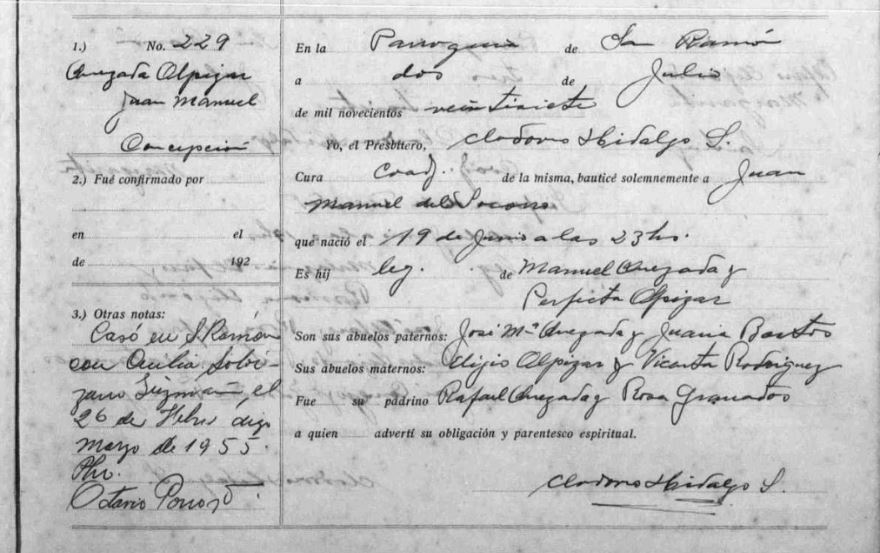 1.) No. 229
Quezada Alpizar
Juan Manuel
Concepción
2.) Fué confirmado por
en el
de 192
3.) Otras notas:
Casó en S. Ramón
con Cecilia
Guzmán, el
26 de Febr digo
Marzo de 1955.
Pbr.
Octavio
En la Parroquia de San Ramón
a dos de Julio
de mil novecientos veintisiete
Yo, el Presbítero, Clodoveo Hidalgo S.
Cura Coadj. de la misma, bauticé solemnemente a Juan
Manuel del Socorro
que nació el 19 de Junio a las 23 hs.
Es hij leg. de Manuel Quezada y
Perfecta Alpizar
Son sus abuelos paternos: José Mª Quezada y Juana Bastos
Sus abuelos maternos: Elijio Alpizar y Vicenta Rodriguez
Fue su padrino Rafael Quezada y Rosa Granados
a quien advertí su obligación y parentesco espiritual.
Clodoveo Hidalgo S.